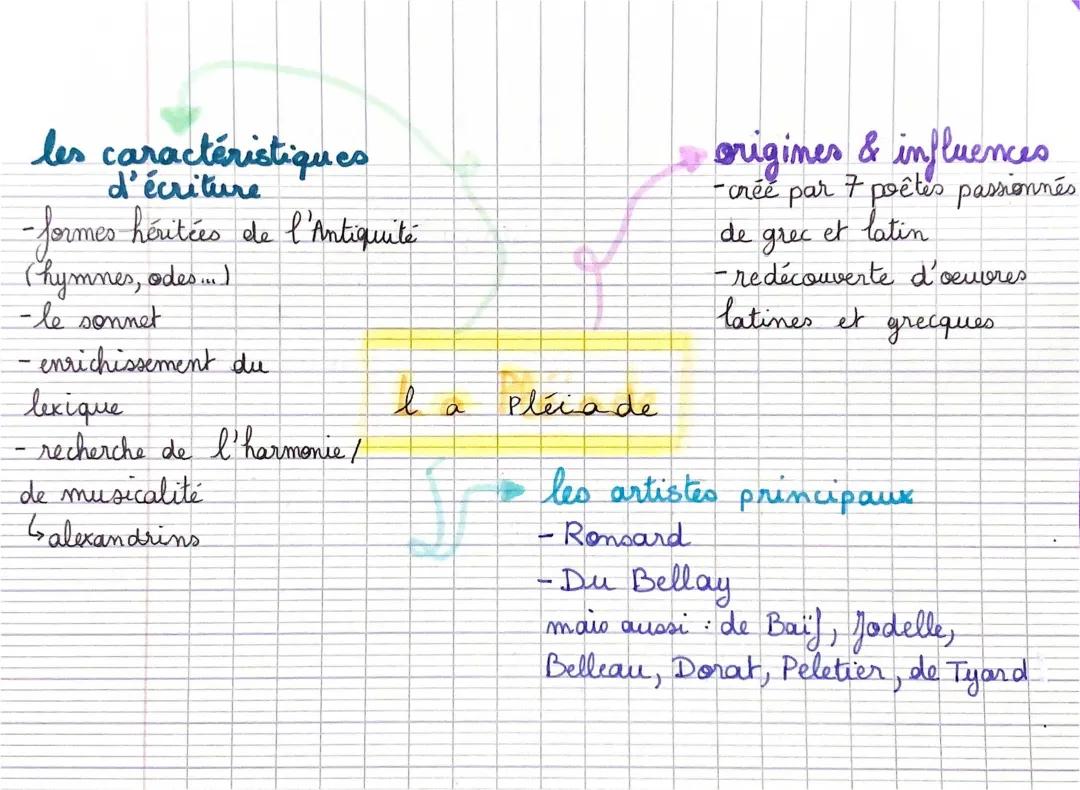 les caractéristiques
d'écriture
- formes héritées de l'Antiquité
(hymnes, odes...)
- le sonnet
- enrichissement du
lexique
- recherche de l'harmonie /
de musicalité
↳ alexandrins
origines & influences
- créé par 7 poêtes passionnés
de grec et latin
- redécouverte d'oeuvres
latines et grecques
La Pléiade
les artistes principaux
- Ronsard
- Du Bellay
mais aussi : de Baïf, Jodelle,
Belleau, Dorat, Peletier, de Tyard